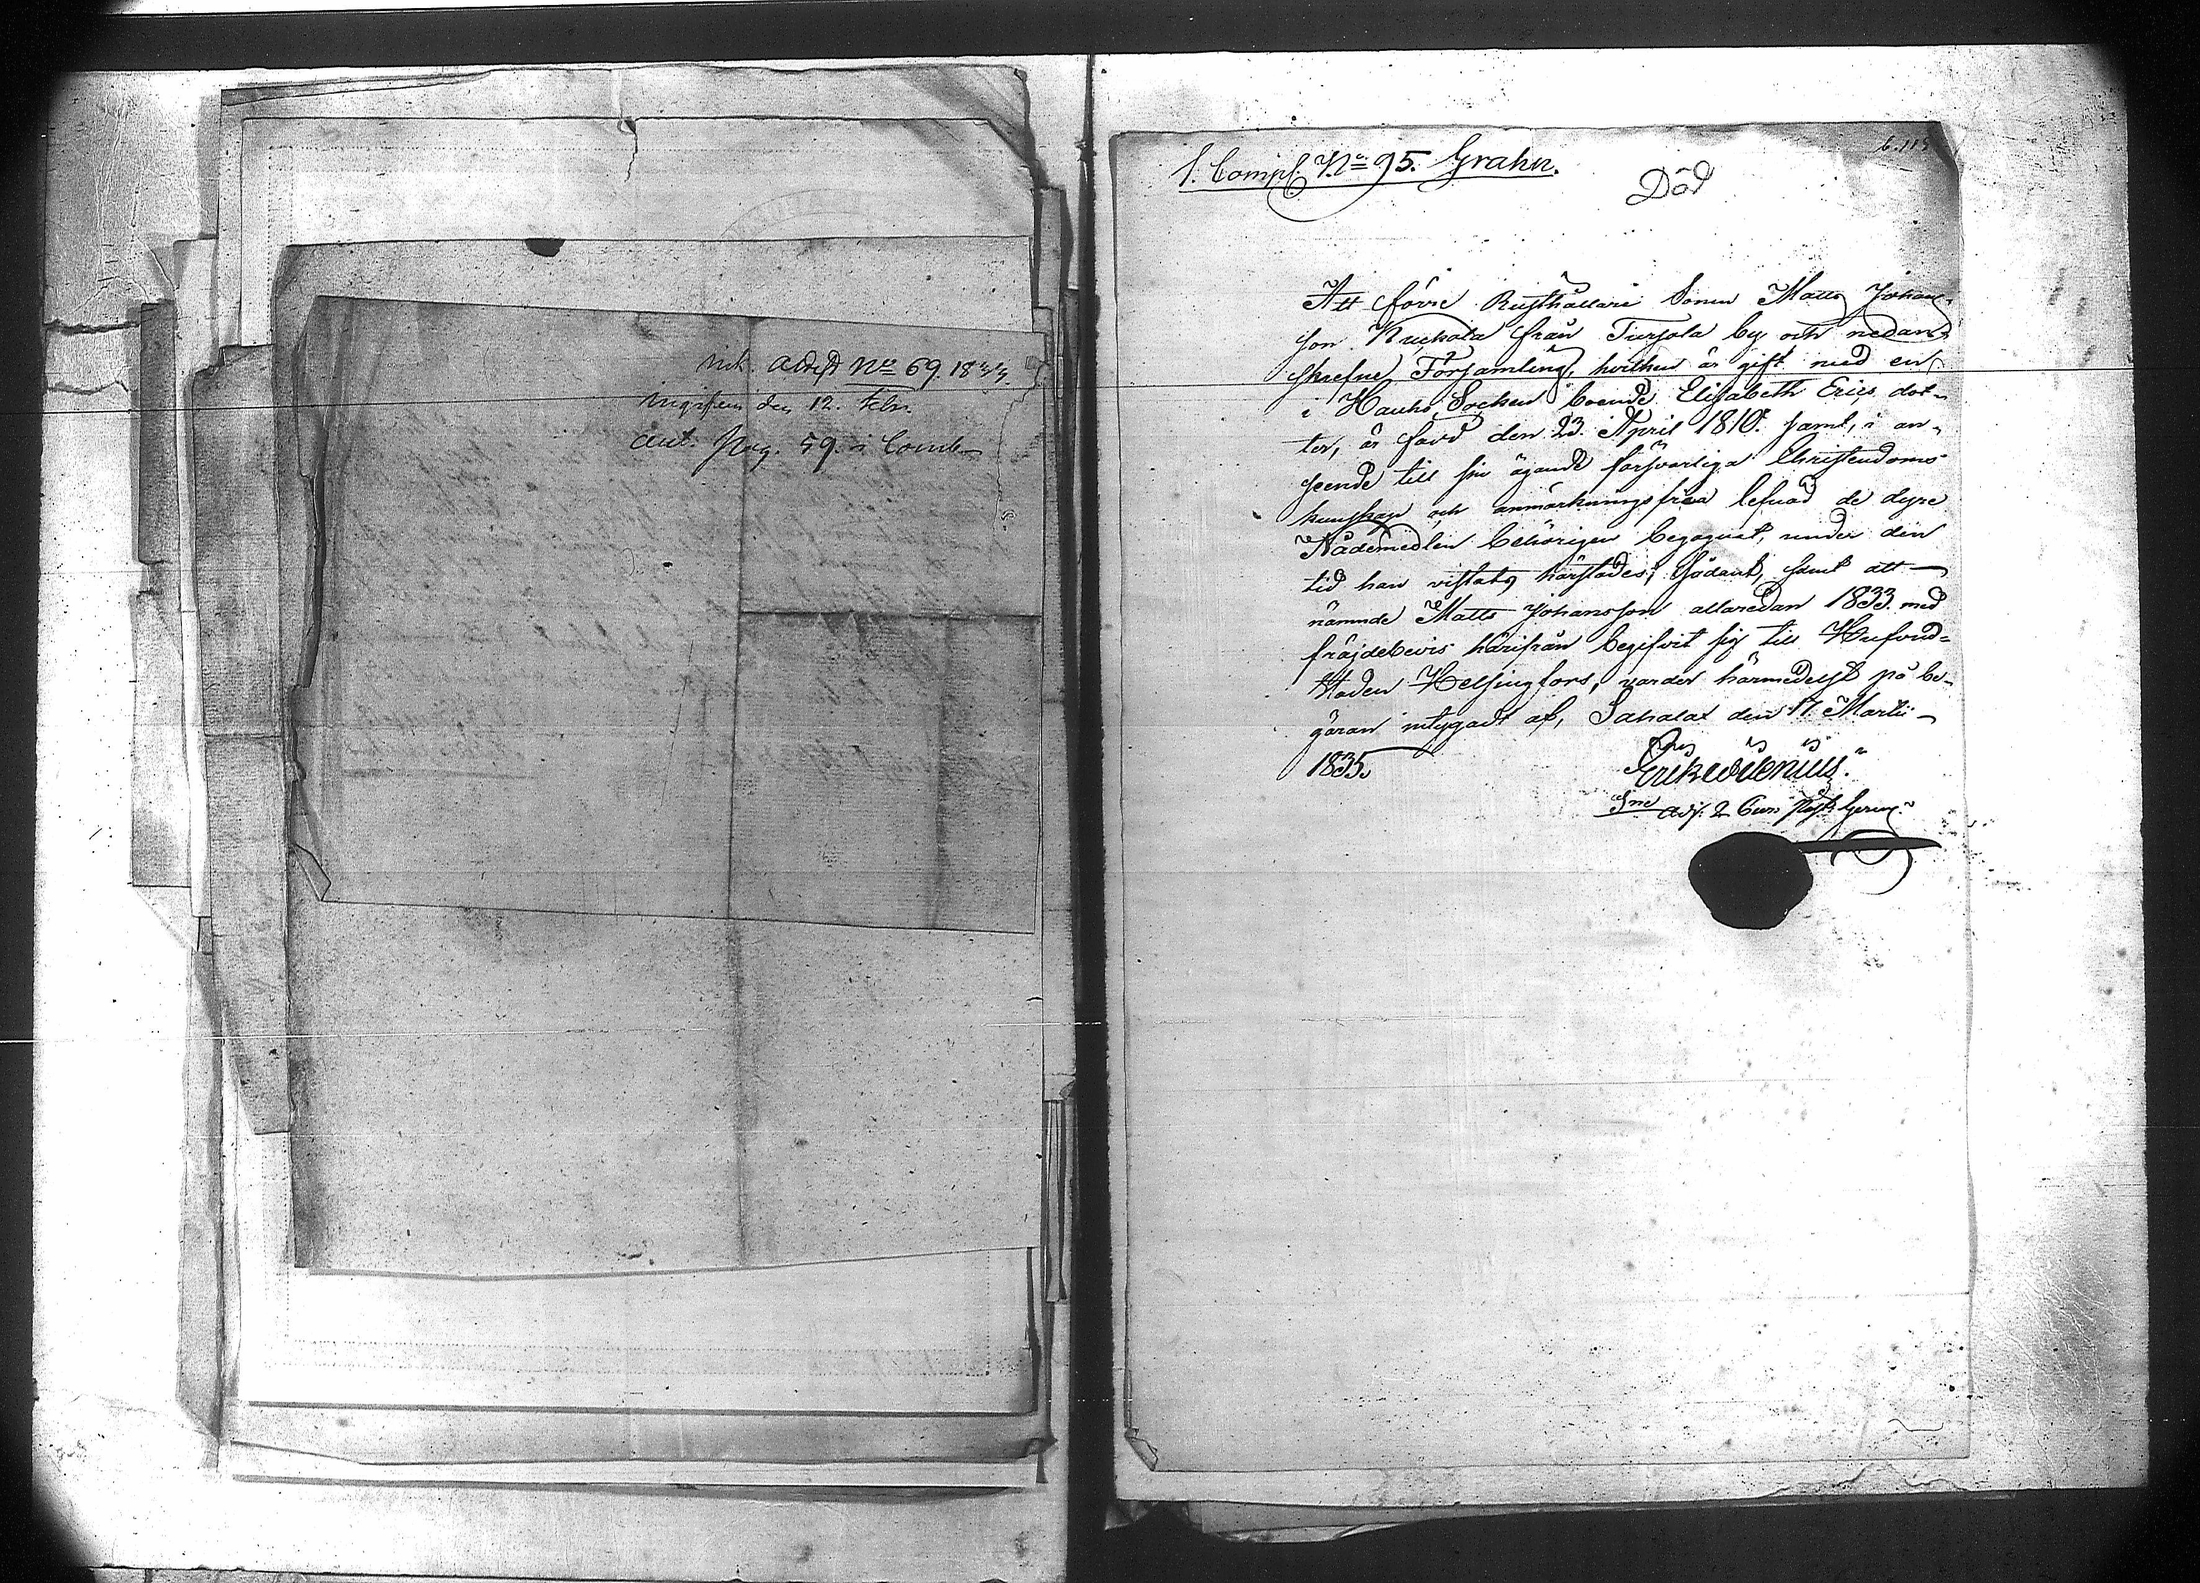 attest No 69 1833.
den 12. Febr.
pag. 59. i Comb
1. Comp. No 95. Grahn.
Död
6.115
Att förre Rusthållare Sonen Matts Johans-
son Kuckola från Tursola by och nedan-
skrefne Församling, hvilken är gift med en
i Hauho Socken boende Elisabeth Ericsdot-
ter, är född den 23. April 1810. samt, i an-
seende till sin ägande försvarliga Christendoms
kunskap och anmärkningsfria lefnad de dyre
Nådemedlen behörigen begagnat, under den
tid han vistats härstädes; Sådant, samt att
nämnde Matts Johansson allaredan 1833. med
fräjdebevis härifrån begifvit sig till Hufvud-
staden Helsingfors, varder härmedelst på be-
gäran intygadt af, Sahalax den 17. Martii
1835.
Erik Wilenius.
Adj. 2